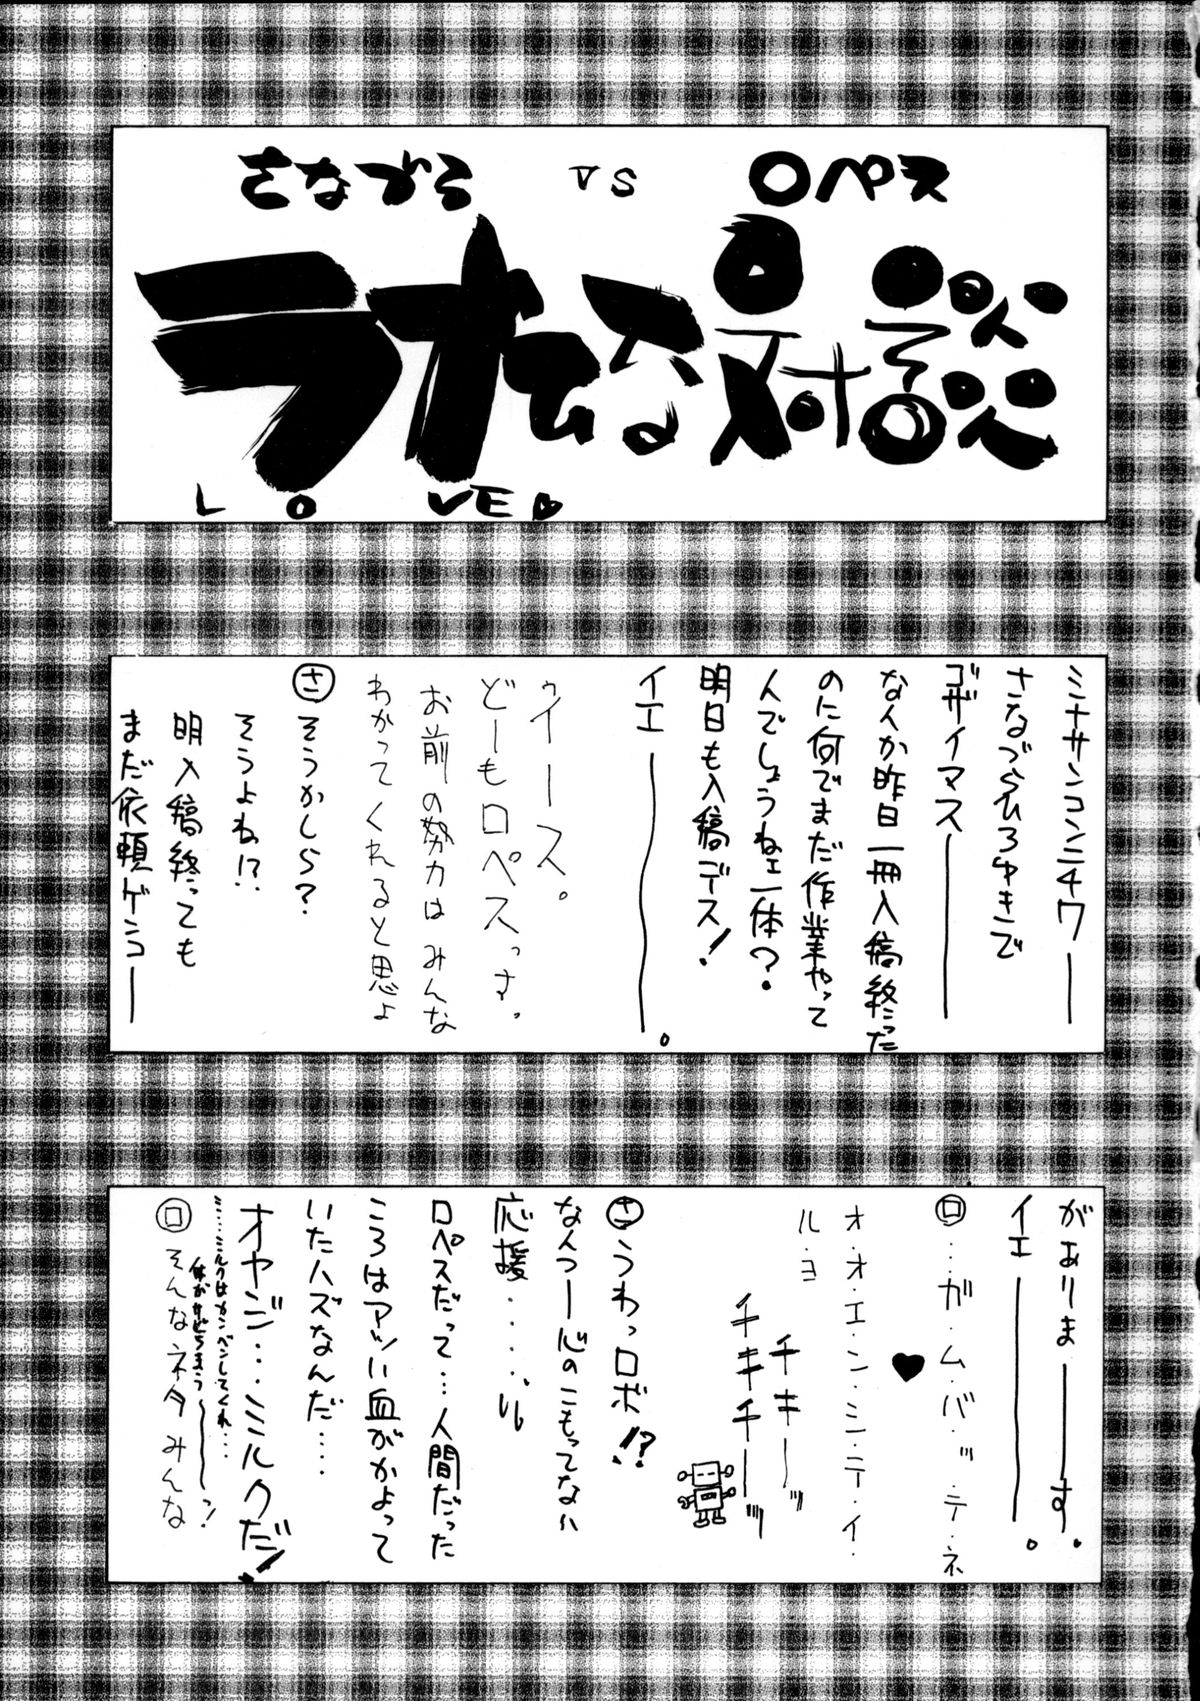 さなづら VS ロペス
ラオウな対談
LOVE♥
ミナサンコンニチワー
さなづらひろゆきで
ゴザイマスー
なんか昨日一冊入稿終った
のに何でまだ作業やって
んでしょうねェ一体?.
明日も入稿デス!
イエー。
ゥイース。
どーもロペスっす。
お前の努力はみんな
わかってくれると思よ
㋚そうかしら?
そうよね!?
明入稿終っても
まだ依頼ゲンコー
がありまーす.
イエー。
ロ…ガ・ム・バ・ッ・テ・ネ
♥
オ・オ・エ・ン・シ・テ・イ・
ル・ヨ
チキーッ
チキチーッ
㋚うわっロボ!?
なんつー心のこもってない
応援・・・・・
ロペスだって…人間だった
ころはアツい血がかよって
いたハズなんだ・・・・
オヤジ・・・ミルクだ!
ミ……ミルクはカンベンしてくれ…
体がサビちまうーっ!
ロ そんなネタみんな